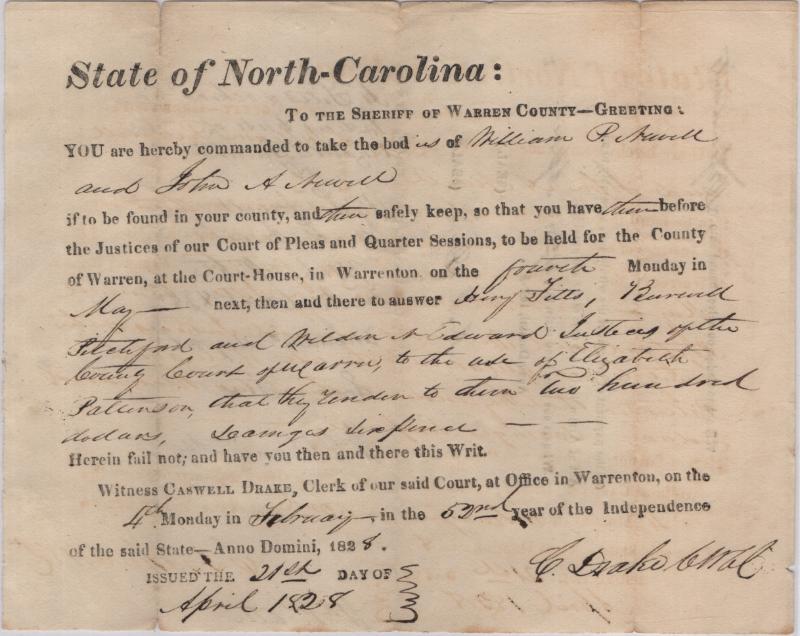 State of North-Carolina:
To the Sheriff of Warren County—Greeting:
YOU are hereby commanded to take the bodies of William P. Newell
and John A Newell
if to be found in your county, and them safely keep, so that you have them before
the Justices of our Court of Pleas and Quarter Sessions, to be held for the County
of Warren, at the Court-House, in Warrenton on the fourth Monday in
May — next, then and there to answer Henry Fitts, Burwell
Pitchford and Weldon N Edward Justices of the
County Court of Warren, to the use of Elizabeth
Patterson, that they render to them Two hundred
dollars, Damages Sixpence — —
Herein fail not; and have you then and there this Writ.
Witness Caswell Drake, Clerk of our said Court, at Office in Warrenton, on the
4th Monday in February in the 52nd year of the Independence
of the said State—Anno Domini, 1828.
ISSUED THE 21st DAY OF
April 1828
C. Drake